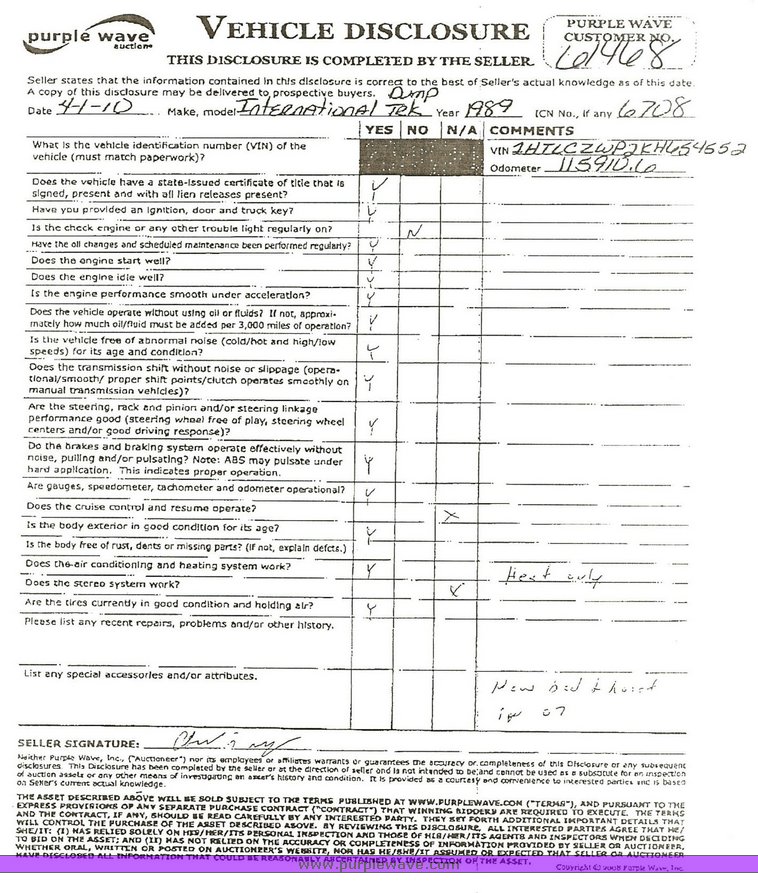 purple wave
auction
VEHICLE DISCLOSURE
THIS DISCLOSURE IS COMPLETED BY THE SELLER.
PURPLE WAVE
CUSTOMER NO.
61468
Seller states that the information contained in this disclosure is correct to the best of Seller's actual knowledge as of this date.
A copy of this disclosure may be delivered to prospective buyers.
Dump
Date 4-1-10 Make, model International Trk Year 1989 ICN No., if any 6708
YES NO N/A COMMENTS
What is the vehicle identification number (VIN) of the
vehicle (must match paperwork)?
VIN 1HTLCZWP2KH654552
Odometer 115910.6
Does the vehicle have a state-issued certificate of title that is
signed, present and with all lien releases present? ✓
Have you provided an ignition, door and truck key? Y
Is the check engine or any other trouble light regularly on? N
Have the oil changes and scheduled maintenance been performed regularly? Y
Does the engine start well? Y
Does the engine idle well? Y
Is the engine performance smooth under acceleration? Y
Does the vehicle operate without using oil or fluids? If not, approxi-
mately how much oil/fluid must be added per 3,000 miles of operation? Y
Is the vehicle free of abnormal noise (cold/hot and high/low
speeds) for its age and condition? Y
Does the transmission shift without noise or slippage (opera-
tional/smooth/ proper shift points/clutch operates smoothly on
manual transmission vehicles)? Y
Are the steering, rack and pinion and/or steering linkage
performance good (steering wheel free of play, steering wheel
centers and/or good driving response)? Y
Do the brakes and braking system operate effectively without
noise, pulling and/or pulsating? Note: ABS may pulsate under
hard application. This indicates proper operation. Y
Are gauges, speedometer, tachometer and odometer operational? Y
Does the cruise control and resume operate? X
Is the body exterior in good condition for its age? Y
Is the body free of rust, dents or missing parts? (if not, explain defcts.)
Does the air conditioning and heating system work? Y Heat only
Does the stereo system work? X
Are the tires currently in good condition and holding air? Y
Please list any recent repairs, problems and/or other history.
List any special accessories and/or attributes.
New bed & hoist
in 07
SELLER SIGNATURE:
Neither Purple Wave, Inc., ("Auctioneer") nor its employees or affiliates warrants or guarantees the accuracy or completeness of this Disclosure or any subsequent
disclosures. This Disclosure has been completed by the seller or at the direction of seller and is not intended to be and cannot be used as a substitute for an inspection
of auction assets or any other means of investigating an asset's history and condition. It is provided as a courtesy and convenience to interested parties and is based
on Seller's current actual knowledge.
THE ASSET DESCRIBED ABOVE WILL BE SOLD SUBJECT TO THE TERMS PUBLISHED AT WWW.PURPLEWAVE.COM ("TERMS"), AND PURSUANT TO THE
EXPRESS PROVISIONS OF ANY SEPARATE PURCHASE CONTRACT ("CONTRACT") THAT WINNING BIDDERS ARE REQUIRED TO EXECUTE. THE TERMS
AND THE CONTRACT, IF ANY, SHOULD BE READ CAREFULLY BY ANY INTERESTED PARTY. THEY SET FORTH ADDITIONAL IMPORTANT DETAILS THAT
WILL CONTROL THE PURCHASE OF THE ASSET DESCRIBED ABOVE. BY REVIEWING THIS DISCLOSURE, ALL INTERESTED PARTIES AGREE THAT HE/
SHE/IT: (I) HAS RELIED SOLELY ON HIS/HER/ITS PERSONAL INSPECTION AND THOSE OF HIS/HER/ITS AGENTS AND INSPECTORS WHEN DECIDING
TO BID ON THE ASSET; AND (II) HAS NOT RELIED ON THE ACCURACY OR COMPLETENESS OF INFORMATION PROVIDED BY SELLER OR AUCTIONEER.
WHETHER ORAL, WRITTEN OR POSTED ON AUCTIONEER'S WEBSITE, NOR HAS HE/SHE/IT ASSUMED OR EXPECTED THAT SELLER OR AUCTIONEER
HAVE DISCLOSED ALL INFORMATION THAT COULD BE REASONABLY ASCERTAINED BY INSPECTION OF THE ASSET.
www.purplewave.com
Copyright © 2008 Purple Wave, Inc.